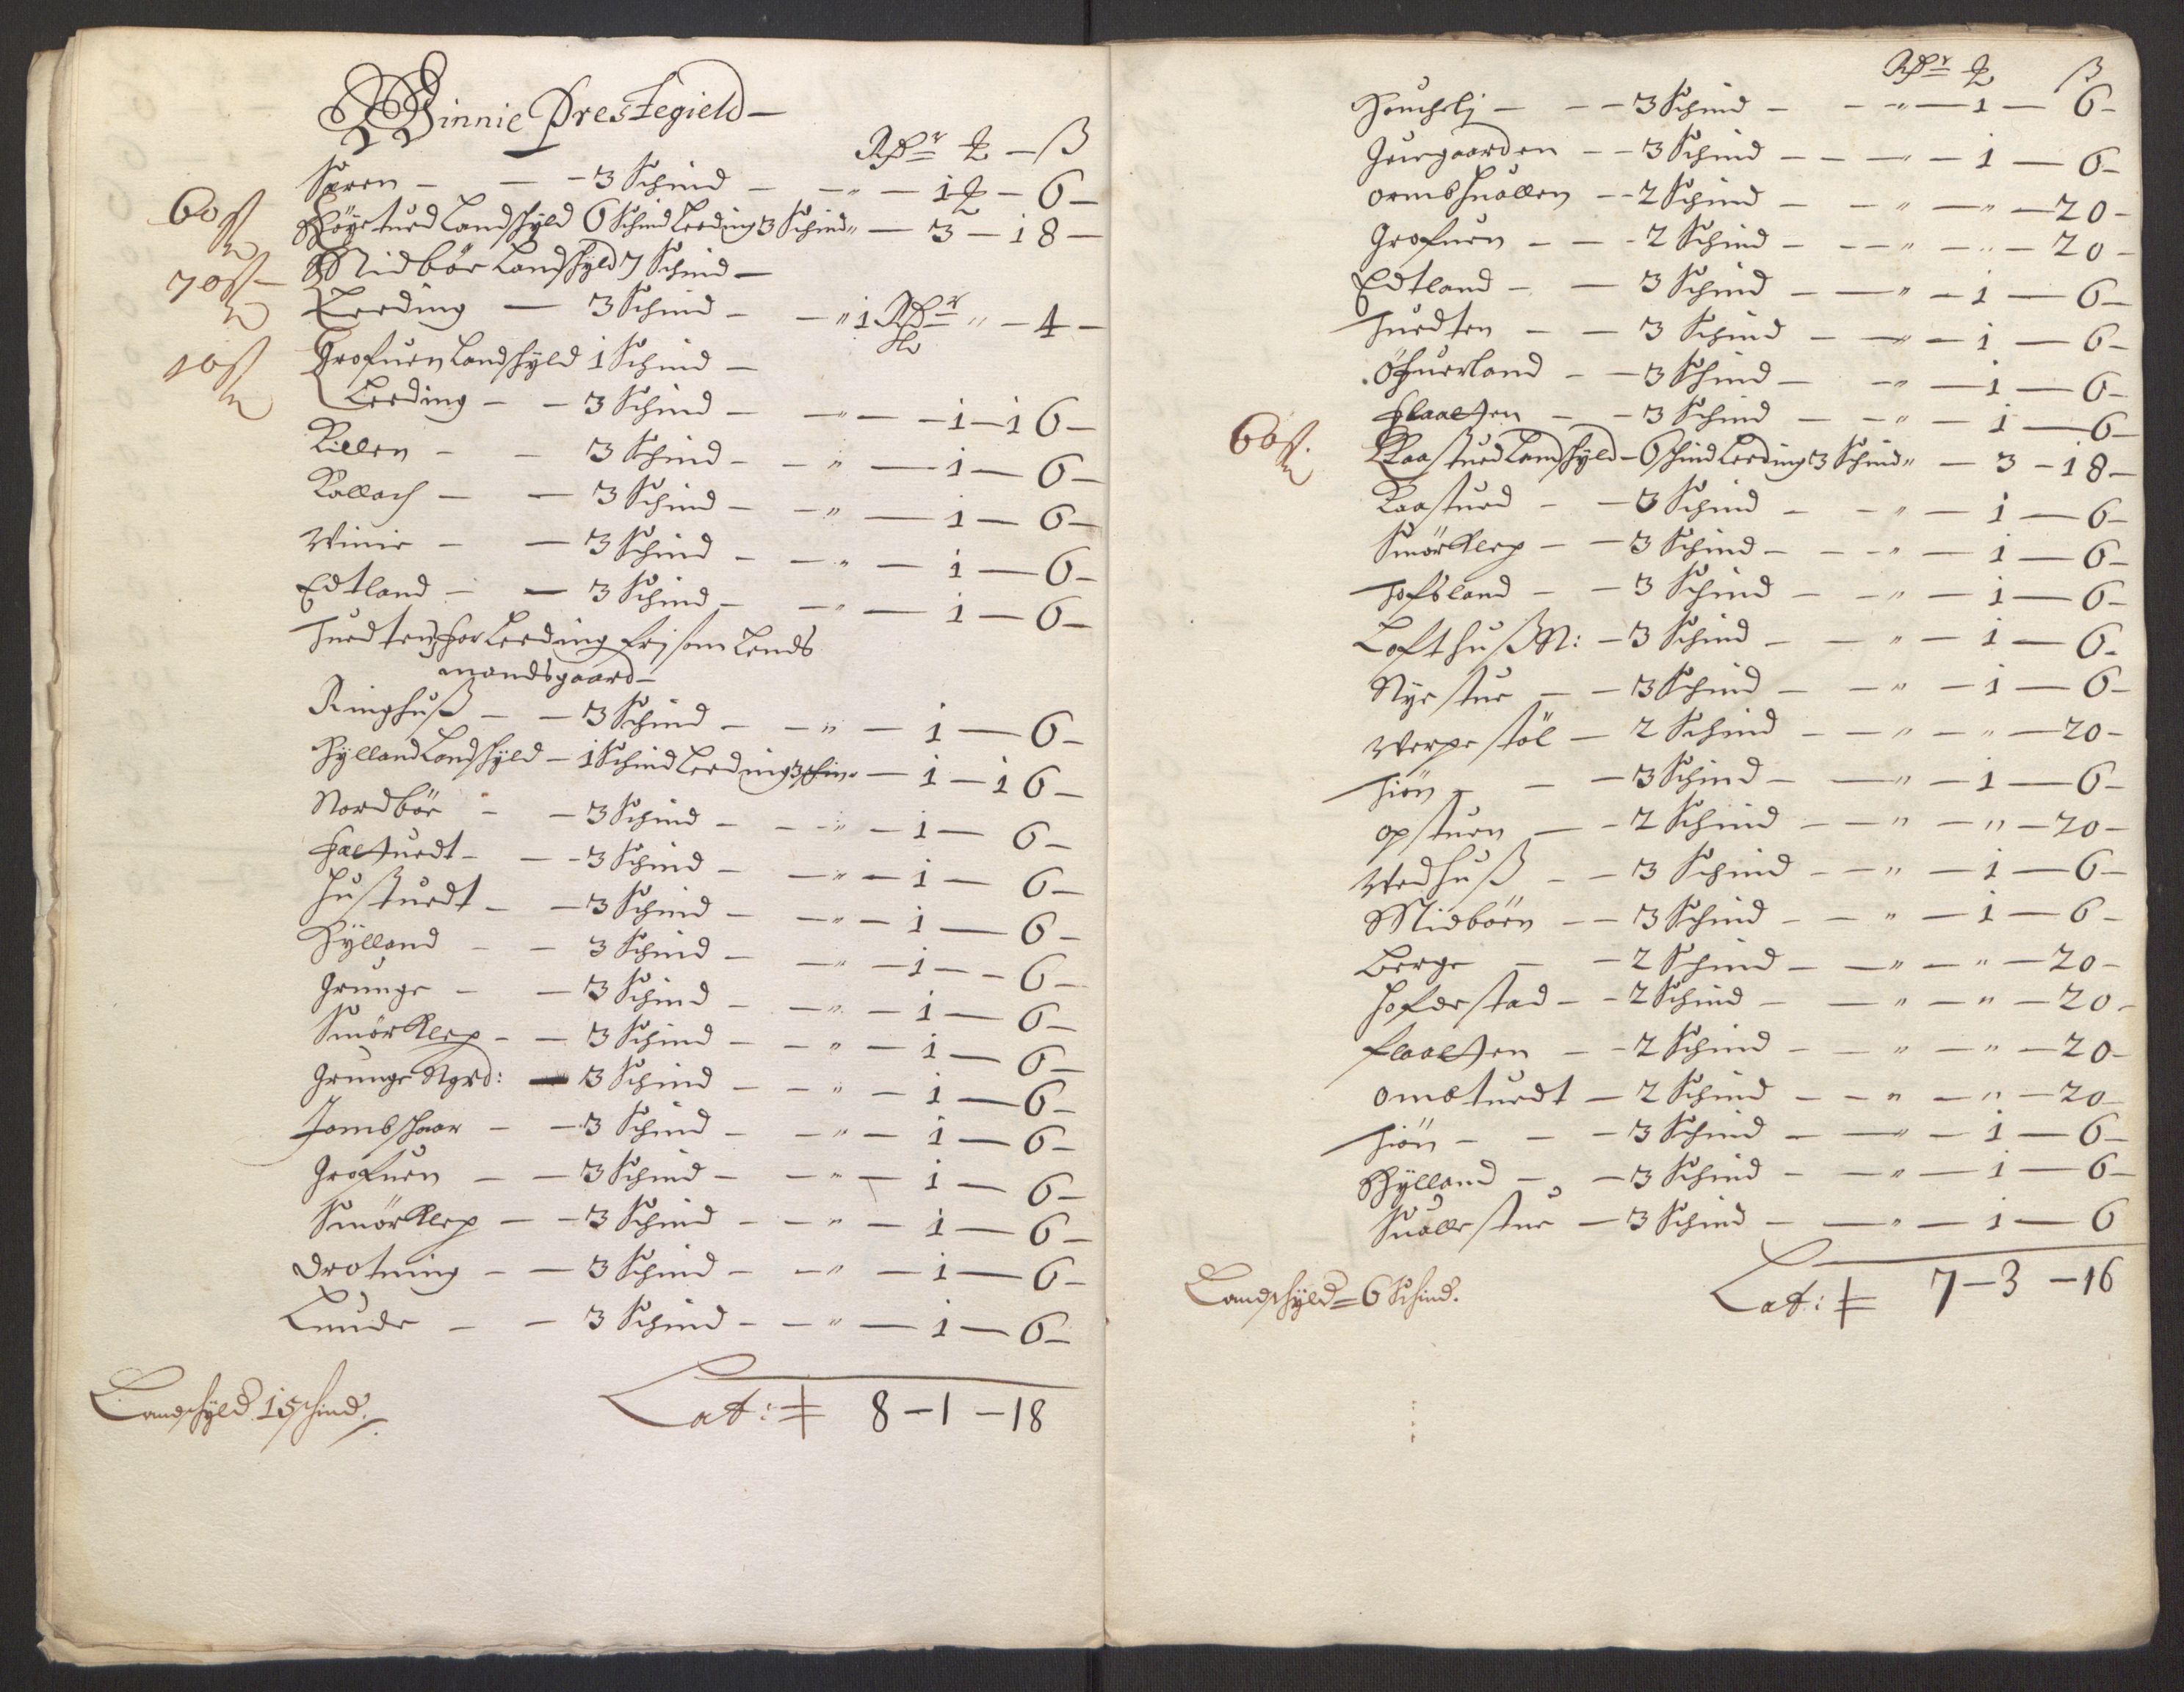 Winnie Prestegield —
Rdr — ß
Spren — — 3 Schind — — „ — 1 — 6 —
Høyetued Landschyld 6 Schind Leeding 3 Schind „ — 3 — 18 —
60
Midbøe Landschyld 7 Schind —
70
Leeding — 3 Schind — — „ 1 Rdr „ — 4 —
Grofuen Landschyld 1 Schind —
10
Leeding — — 3 Schind — — „ — 1 — 16 —
Killen — — 3 Schind — — „ — 1 — 6 —
Kallach — — 3 Schind — — „ — 1 — 6 —
Winie — — 3 Schind — — „ — 1 — 6 —
Edtland — — 3 Schind — — „ — 1 — 6 —
Tuedten for Leeding fri som Lends
mandsgaard —
Ringhuß — — 3 Schind — — „ — 1 — 6 —
Hylland Landschyld — 1 Schind Leeding 3 Schin „ — 1 — 16 —
Nordbøe — — 3 Schind — — „ — 1 — 6 —
— — 3 Schind — — „ — 1 — 6 —
Hustuedt — — 3 Schind — — „ — 1 — 6 —
Hylland — — 3 Schind — — „ — 1 — 6 —
Grunge — — 3 Schind — — „ — 1 — 6 —
Smørklep — — 3 Schind — — „ — 1 — 6 —
Grunge Ngrd: — 3 Schind — — „ — 1 — 6 —
Jambschaar — — 3 Schind — — „ — 1 — 6 —
Grofuen — — 3 Schind — — „ — 1 — 6 —
Smørklep — — 3 Schind — — „ — 1 — 6 —
Drotning — — 3 Schind — — „ — 1 — 6 —
Lunde — — 3 Schind — — „ — 1 — 6 —
Landschyld 15 schind.
Lat: 8 — 1 — 18
Rdr ß
Houchelj — — 3 Schind — — „ — 1 — 6 —
Juegaarden — — 3 Schind — — „ — 1 — 6 —
Ormbhuallen — — 2 Schind — — „ — „ — 20 —
Grofuen — — 2 Schind — — „ — „ — 20 —
Edtland — — 3 Schind — — „ — 1 — 6 —
Tuedten — — 3 Schind — — „ — 1 — 6 —
Øfuerland — — 3 Schind — — „ — 1 — 6 —
Flaatten — — 3 Schind — — „ — 1 — 6 —
60
Raastued Landschyld — 6 schind Leeding 3 Schind „ — 3 — 18 —
Raastued — — 3 Schind — — „ — 1 — 6 —
Smørklep — — 3 Schind — — „ — 1 — 6 —
Tofsland — — 3 Schind — — „ — 1 — 6 —
Lofthuß N: — 3 Schind — — „ — 1 — 6 —
Nyestue — — 3 Schind — — „ — 1 — 6 —
Werpestøl — 2 Schind — — „ — „ — 20 —
Tiøn — — 3 Schind — — „ — 1 — 6 —
Opstuen — — 2 Schind — — „ — „ — 20 —
Wedhuß — — 3 Schind — — „ — 1 — 6 —
Midbøen — — 3 Schind — — „ — 1 — 6 —
Berge — — 2 Schind — — „ — „ — 20 —
Hofdestad — — 2 Schind — — „ — „ — 20 —
Flaatten — — 2 Schind — — „ — „ — 20 —
Ombtuedt — 2 Schind — — „ — „ — 20 —
Tiøn — — 3 Schind — — „ — 1 — 6 —
Hylland — — 3 Schind — — „ — 1 — 6 —
Suallestue — 3 Schind — — „ — 1 — 6
Landschyld = 6 Schind.
Lat: 7 — 3 — 16